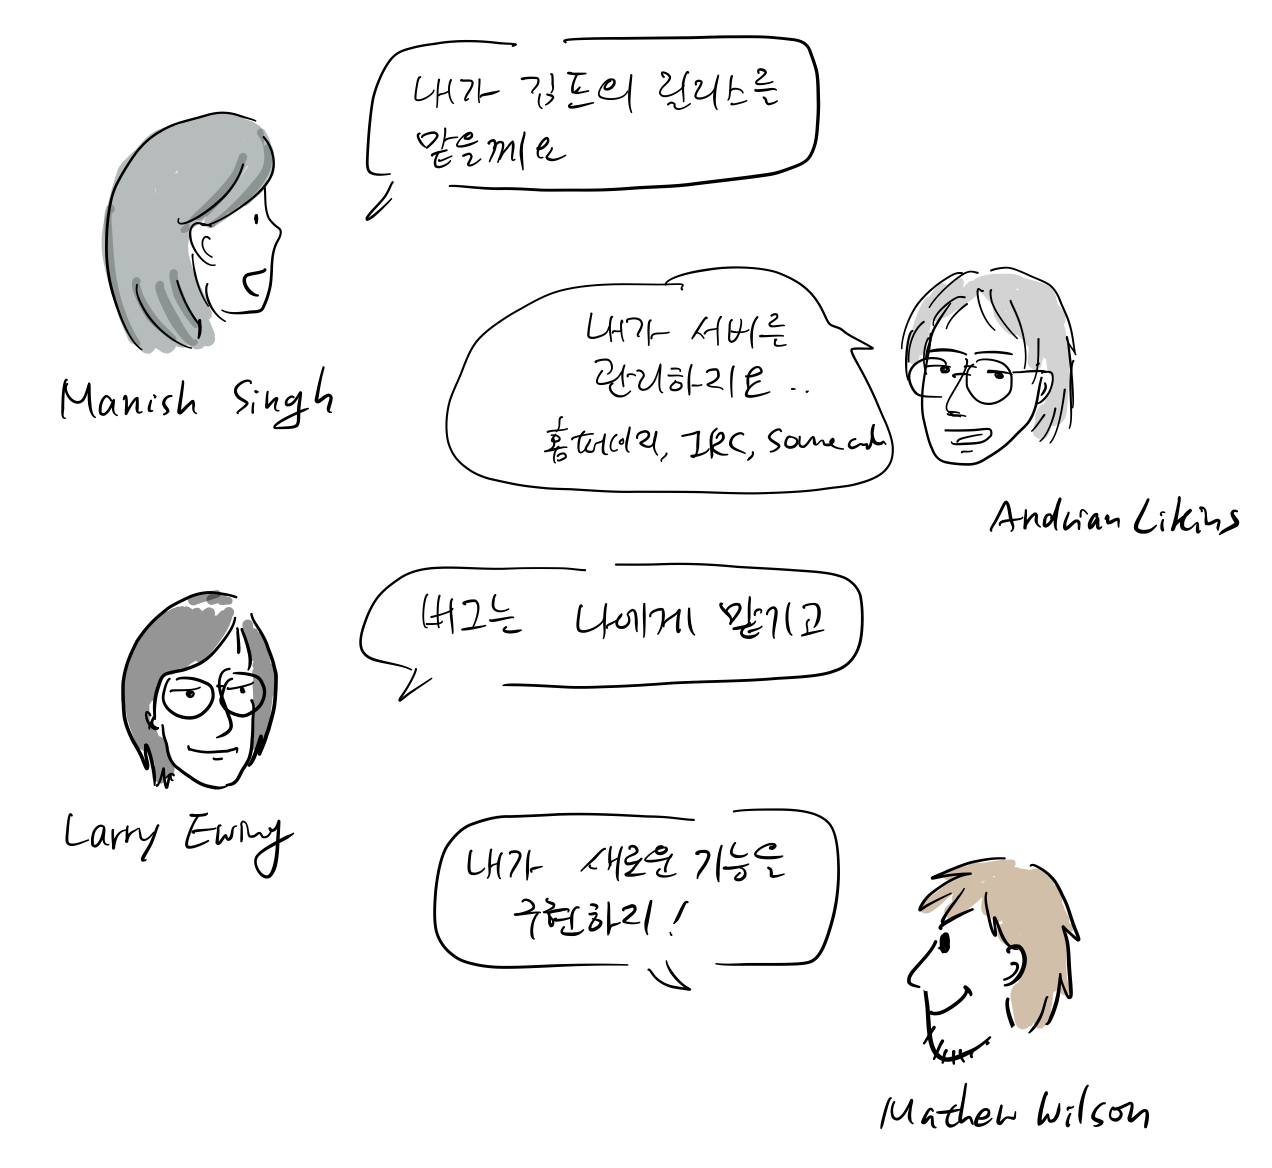 내가 김프의 릴리스를
맡을께요
Manish Singh
내가 서버를
관리하지요..
홈페이지, IRC,
Andrian Likins
버그는 나에게 맡기고
Larry Ewing
내가 새로운 기능을
구현하지!
Mathew Wilson